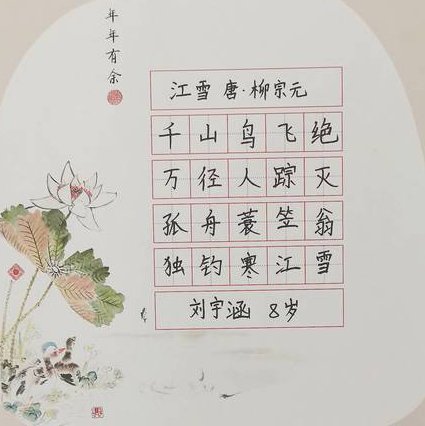 年年有余
江雪 唐·柳宗元
千山鸟飞绝
万径人踪灭
孤舟蓑笠翁
独钓寒江雪
刘宇涵 8岁